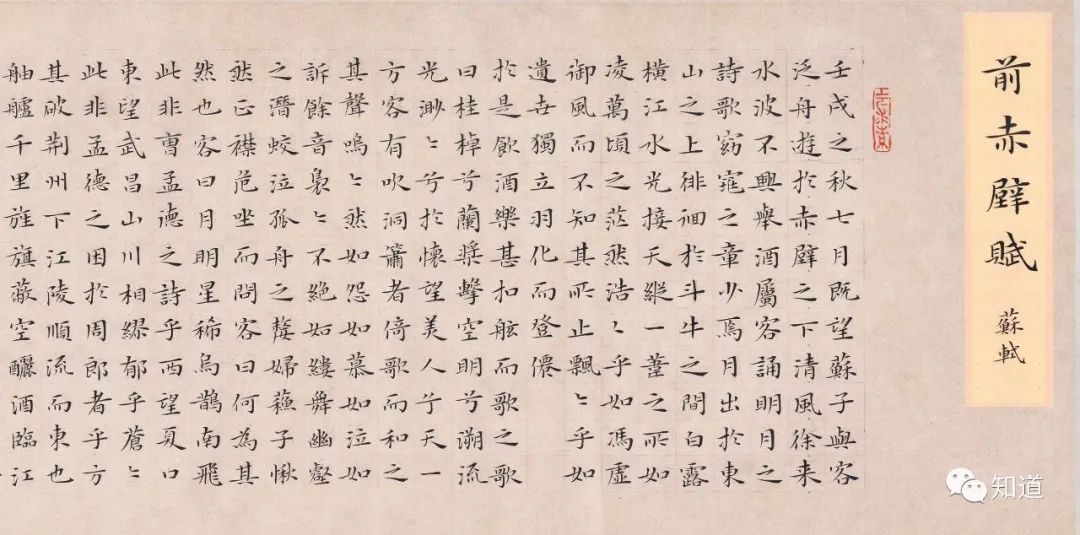 前赤壁賦
蘇軾
壬戌之秋七月既望蘇子與客
泛舟遊於赤壁之下清風徐来
水波不興舉酒屬客誦明月之
詩歌窈窕之章少焉月出於東
山之上徘徊於斗牛之間白露
橫江水光接天縱一葦之所如
凌萬頃之茫然浩〻乎如馮虛
御風而不知其所止飄〻乎如
遺世獨立羽化而登僊
於是飲酒樂甚扣舷而歌之歌
曰桂棹兮蘭槳擊空明兮溯流
光渺〻兮於懷望美人兮天一
方客有吹洞簫者倚歌而和之
其聲嗚〻然如怨如慕如泣如
訴餘音裊〻不絕如縷舞幽壑
之潛蛟泣孤舟之嫠婦蘇子愀
然正襟危坐而問客曰何為其
然也客曰月明星稀烏鵲南飛
此非曹孟德之詩乎西望夏口
東望武昌山川相繆郁乎蒼〻
此非孟德之困於周郎者乎方
其破荊州下江陵順流而東也
舳艫千里旌旗蔽空釃酒臨江
知道